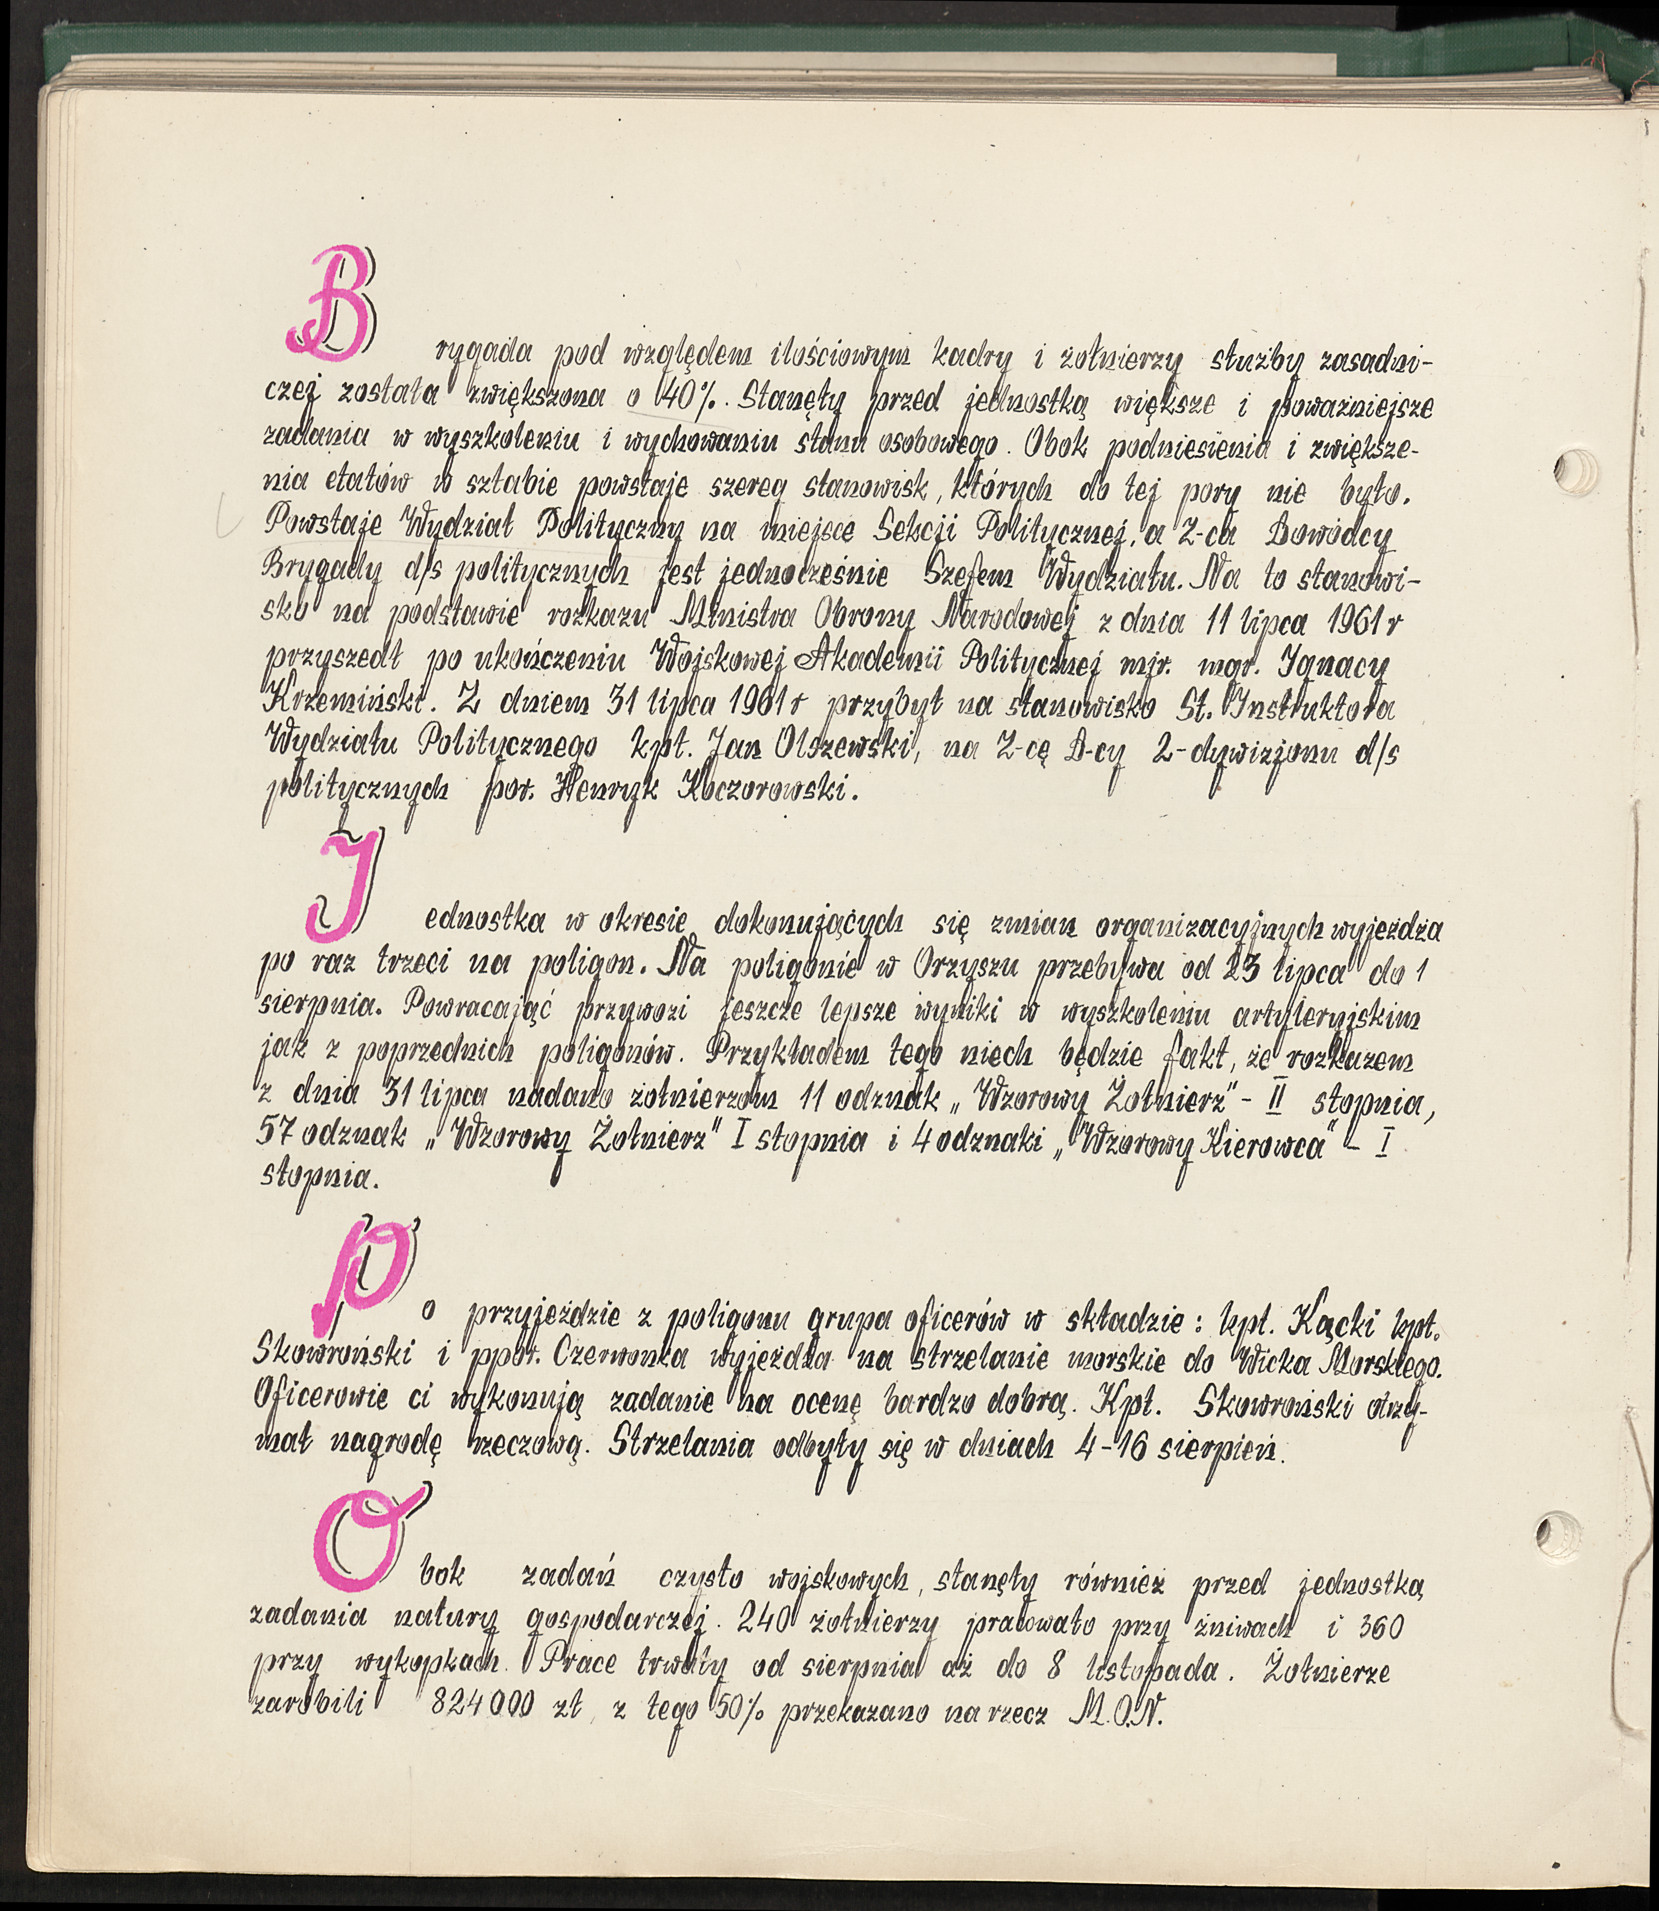 Brygada pod względem ilościowym kadry i żołnierzy służby zasadni-
czej została zwiększona o 40%. Stanęły przed jednostką większe i poważniejsze
zadania w wyszkoleniu i wychowaniu stanu osobowego. Obok podniesienia i zwiększe-
nia etatów w sztabie powstaje szereg stanowisk, których do tej pory nie było.
Powstaje Wydział Polityczny na miejsce Sekcji Politycznej, a Z-ca Dowódcy
Brygady d/s politycznych jest jednocześnie Szefem Wydziału. Na to stanowi-
sko na podstawie rozkazu Ministra Obrony Narodowej z dnia 11 lipca 1961 r
przyszedł po ukończeniu Wojskowej Akademii Politycznej mjr. mgr. Ignacy
Krzemiński. Z dniem 31 lipca 1961 r przybył na stanowisko St. Instruktora
Wydziału Politycznego kpt. Jan Olszewski, na Z-cę D-cy 2-dywizjonu d/s
politycznych por. Henryk Koczorowski.
Jednostka w okresie dokonujących się zmian organizacyjnych wyjeżdża
po raz trzeci na poligon. Na poligonie w Orzyszu przebywa od 23 lipca do 1
sierpnia. Powracając przywozi jeszcze lepsze wyniki w wyszkoleniu artyleryjskim
jak z poprzednich poligonów. Przykładem tego niech będzie fakt, że rozkazem
z dnia 31 lipca nadano żołnierzom 11 odznak „Wzorowy Żołnierz" - II stopnia,
57 odznak „Wzorowy Żołnierz" I stopnia i 4 odznaki „Wzorowy Kierowca" - I
stopnia.
Po przyjeździe z poligonu grupa oficerów w składzie: kpt. Kącki kpt.
Skowroński i ppor. Czerwonka wyjeżdża na strzelanie morskie do Wicka Morskiego.
Oficerowie ci wykonują zadanie na ocenę bardzo dobrą. Kpt. Skowroński otrzy-
mał nagrodę rzeczową. Strzelania odbyły się w dniach 4-16 sierpień.
Obok zadań czysto wojskowych, stanęły również przed jednostką
zadania natury gospodarczej. 240 żołnierzy pracowało przy żniwach i 360
przy wykopkach. Prace trwały od sierpnia aż do 8 listopada. Żołnierze
zarobili 824000 zł, z tego 50% przekazano na rzecz M.O.N.